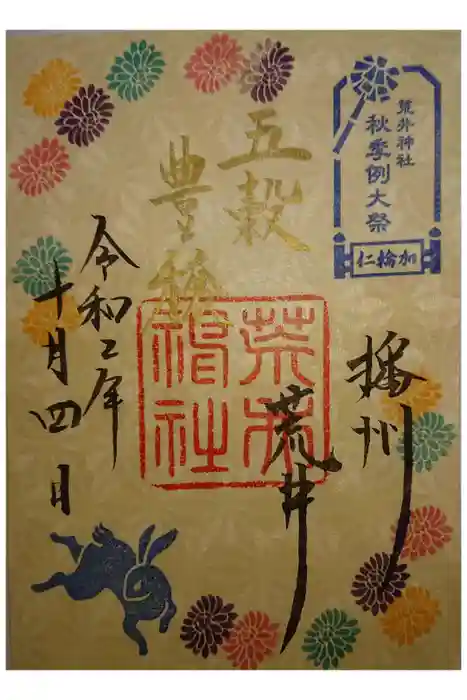 荒井神社
秋季例大祭
仁輪加
播州
荒井
五穀
豊穣
荒井
神社
令和二年
十月四日